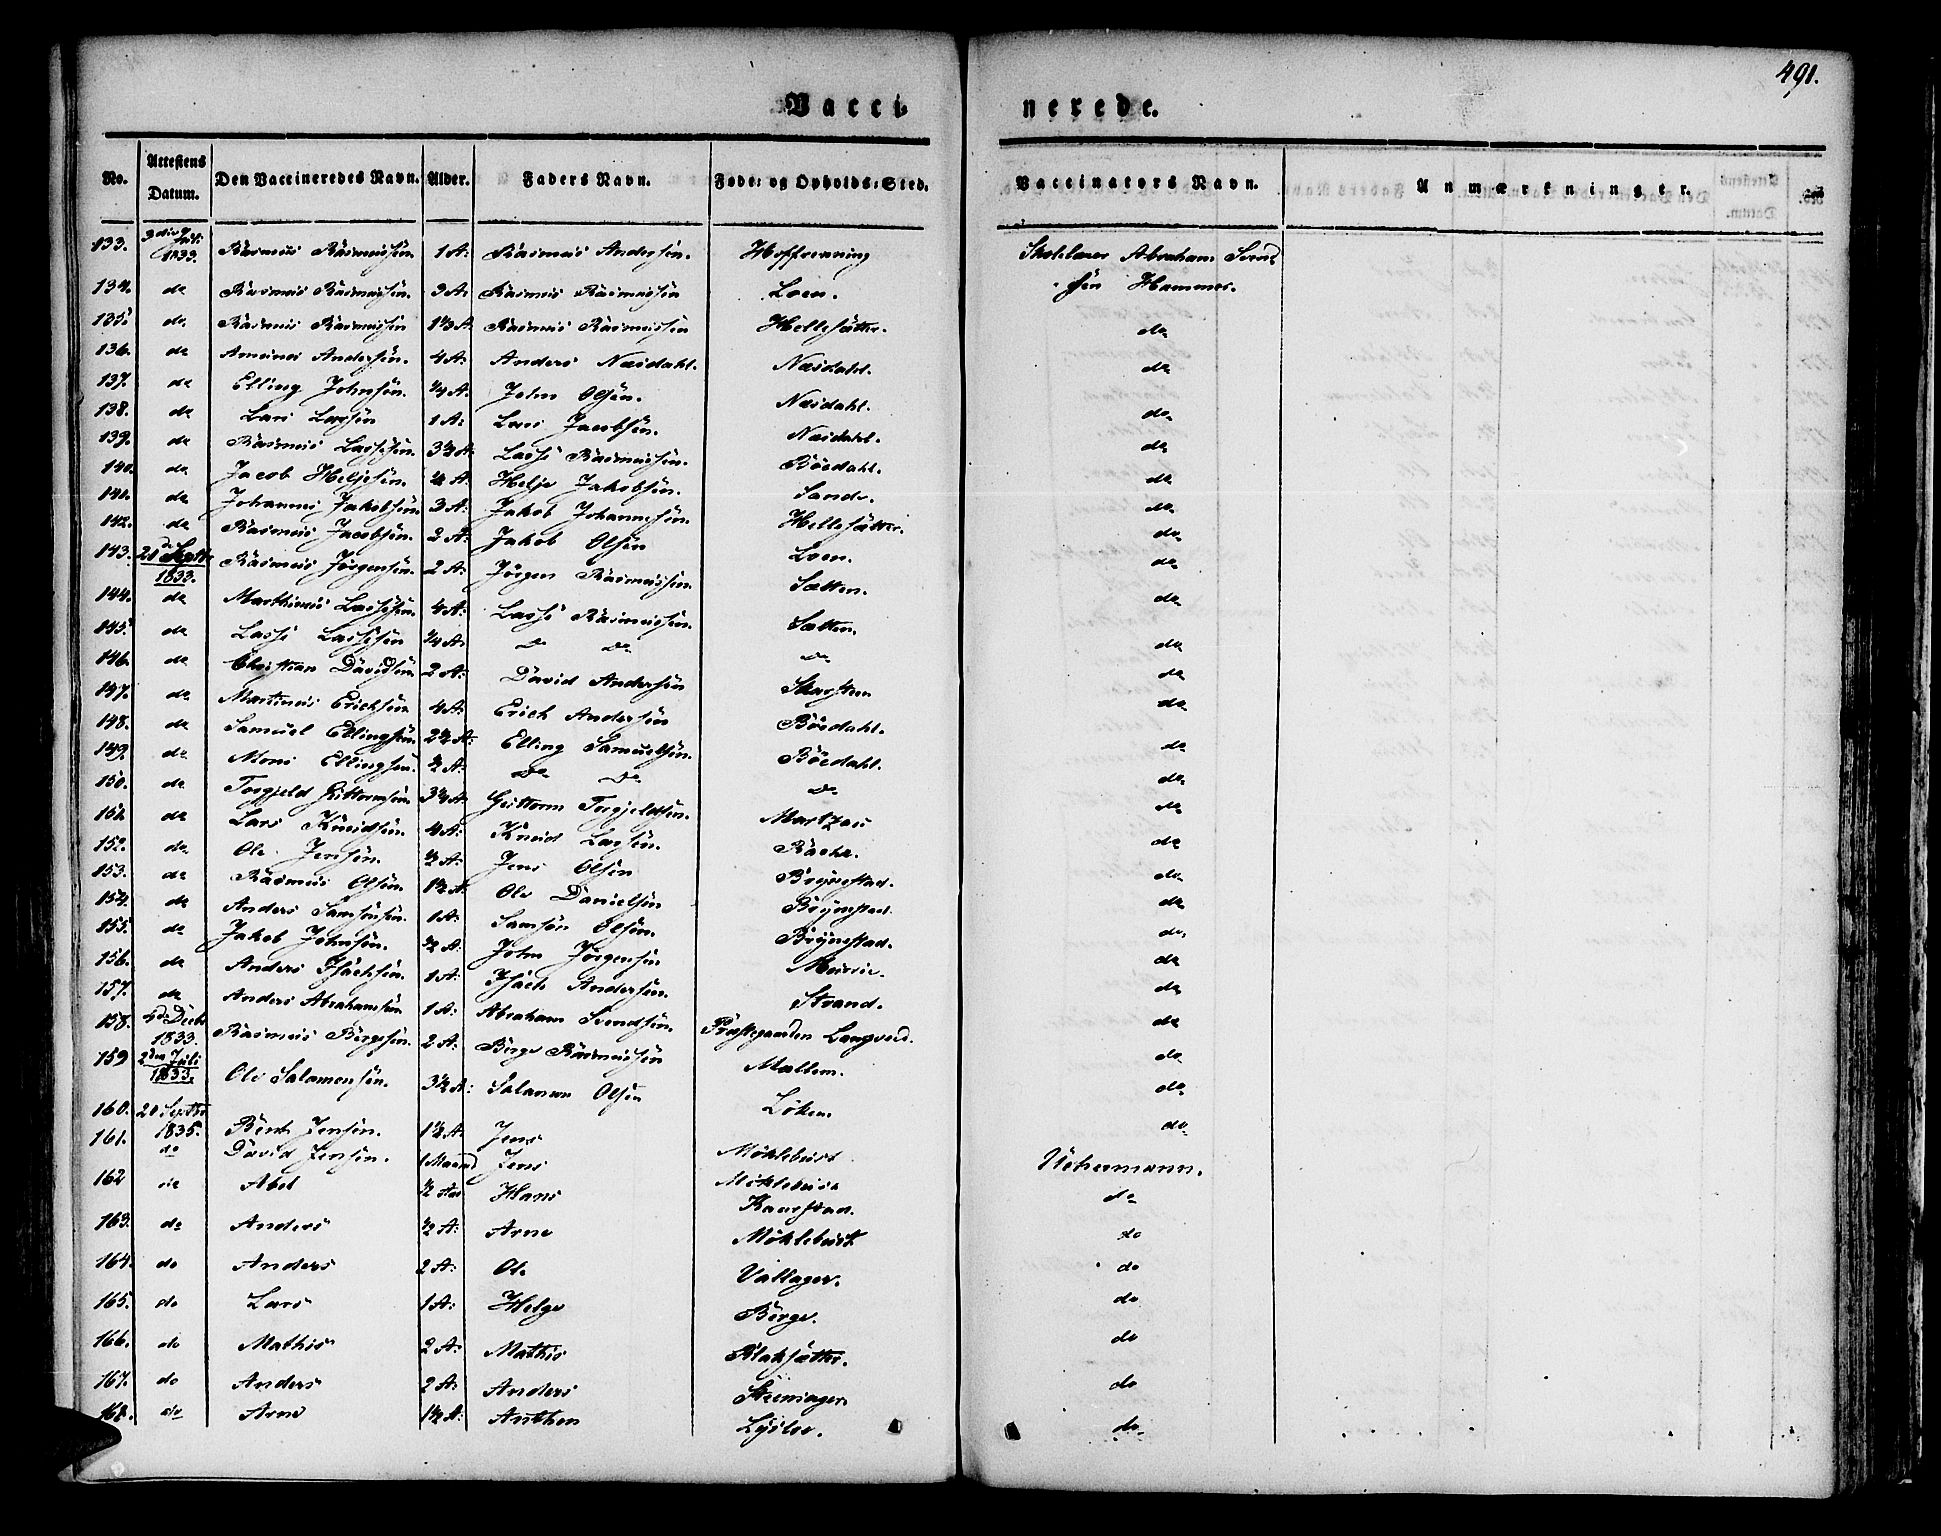 491.
Vacci- nerede.
No. Attestens Datum. Den Vaccineredes Navn. Alder. Faders Navn. Føde- og Opholds-Sted. Vaccinators Navn. Anmærkninger.
133. 1833. Rasmus Rasmussen. 1 A: Rasmus Andersen. Skolelærer Abraham Svend
134. do Rasmus Rasmussen. 3 A: Rasmus Rasmussen Loen. sen Hammer.
135. do. Rasmus Rasmussen 1½ A: Rasmus Rasmussen Hellesætter. do
136. do Andersen. 4 A: Anders Næsdahl. Næsdahl. do
137. do Elling Johnsen. ¼ A: John Olsen. Næsdahl. do
138. do Lars Larsen 1 A: Lars Jacobsen. Næsdahl. do
139. do Rasmus Lassesen. Lasse Rasmussen. Bøedahl. do
140. do Jacob Heljesen. Helje Jakobsen. Sande. do
141. do Johannes Jakobsen 3 A: Jakob Johannesen. Hellesætter. do
142. do Rasmus Jacobsen. 2 A: Jakob Olsen Loen. do
143. 20 Septbr 1833. Rasmus Jørgensen. 2 A: Jørgen Rasmussen. Sætten. do
144. do Lassesen. 4 A: Lasse Rasmussen. Sætten. do
145. do Lasse Lassesen ¼ A: Do Do Do do
146. do Christian Davidsen 2 A: David Andersen do
147. do Martinus Erichsen 4 A: Erich Andersen Bøedahl. do
148. do Samuel Ellingsen. 2½ A: Elling Samuelsen. Bøedahl. do
149. do Mons Ellingsen. ½ A: Do Do Do do
150. do Torgjeld Guttormsen Guttorm Torgjeldsen. do
151. do Lars Knudsen. 4 A: Knud Larsen. do
152. do Ole Jensen. ½ A: Jens Olsen Brynestad. do
153. do Rasmus Olsen. 1½ A: Ole Danielsen Brynestad. do
154. do Anders Samsonsen. 1 A: Samson Olsen. Brynestad. do
155. do Jakob Johnsen. ½ A: John Jørgensen do
156. do Anders Isachsen. 1 A: Isach Andersen. Strand. do
157. do Anders Abrahamsen 1 A: Abraham Svendsen. Præstegaarden do
158. Decbr 1833. Rasmus Børgesen. 2 A: Børge Rasmussen do
159 2den Juli 1833. Ole Salamonsen. 3½ A: Salamon Olsen Løken. do
160. 20 Septbr 1835. Bent Jensen. 1½ A. Jens Møklebust do
161. do David Jensen. 1 Maaned Jens Møklebust Uchermann.
162 do Abel ½ Aar Hans Kaarstad. do
163. do Anders ½ A: Arne Møklebust do
164. do Anders 2 A: Ole Vallager. do
165. do Lars 1 A: Helge Berge. do
166. do Mathis 2 A: Mathis Blaksætter. do
167. do Anders 2 A: Anders do
168. do Arne 1½ A: Anthon do